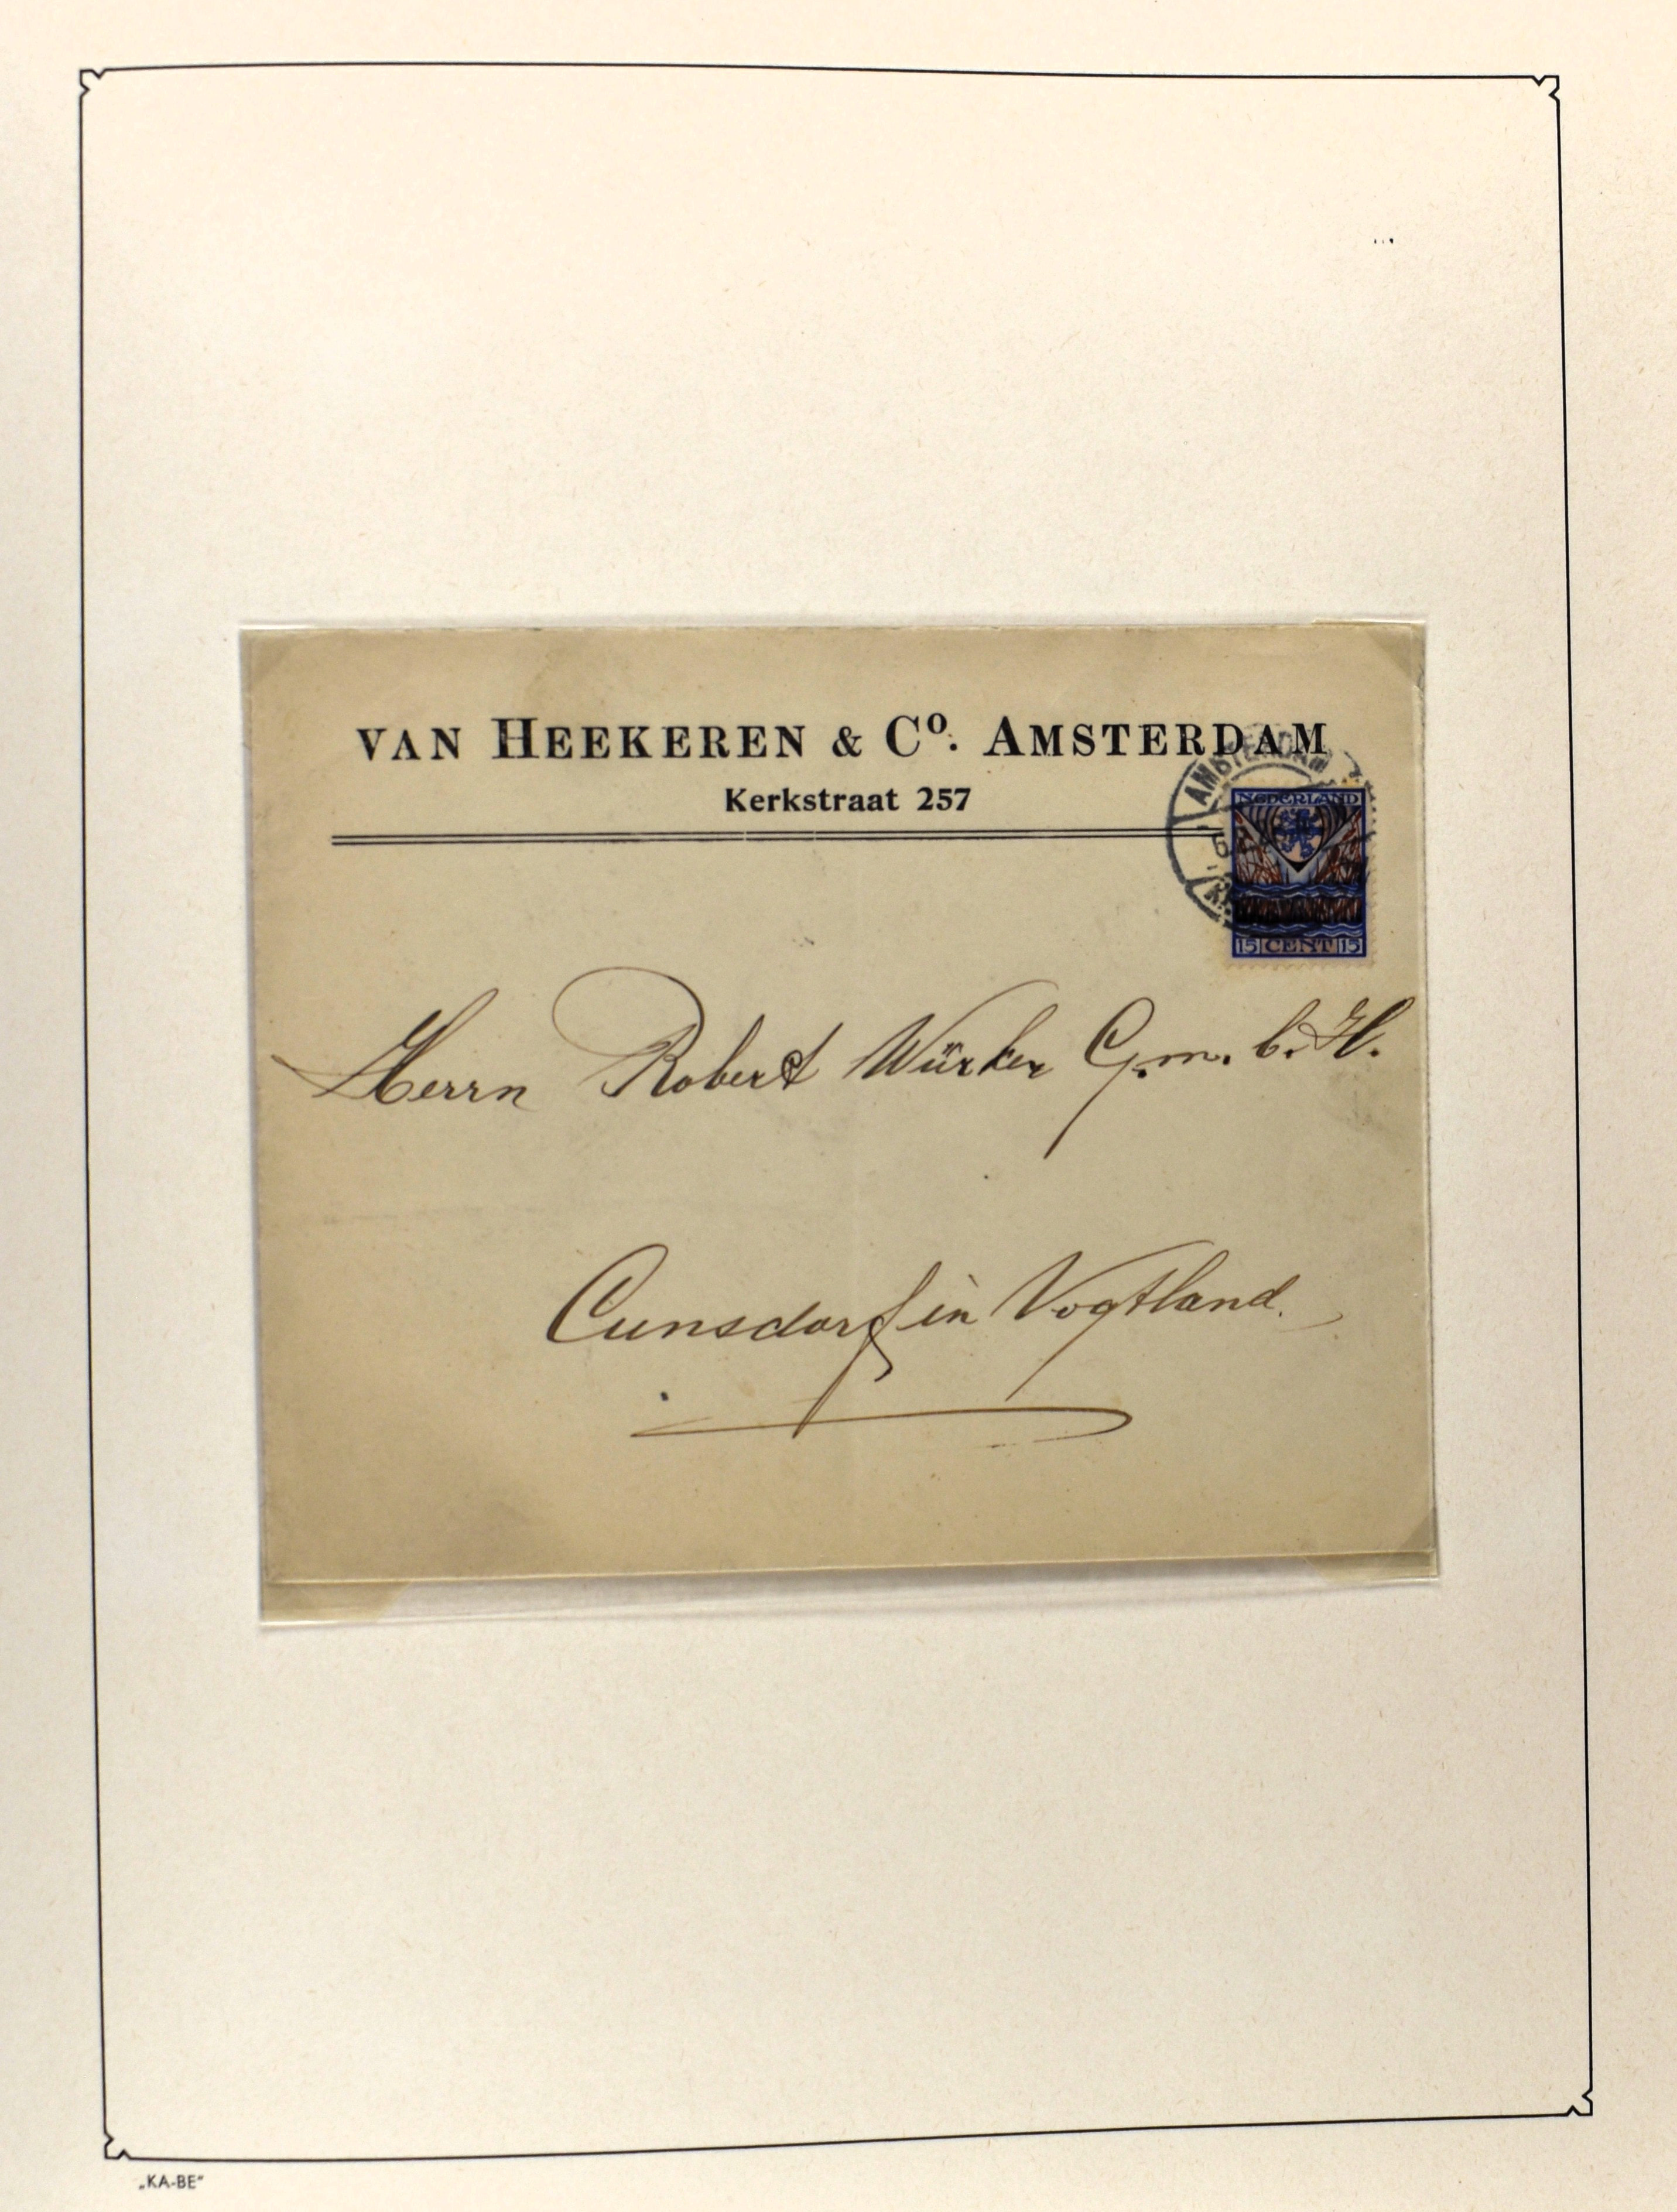 VAN HEEKEREN & Cº. AMSTERDAM
Kerkstraat 257
AMSTERDAM
NEDERLAND
15 CENT 15
Herrn Robert Würker G.m.b.H.
Cunsdorf in Vogtland.
„KA-BE“